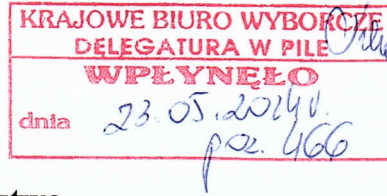 KRAJOWE BIURO WYBORCZE
DELEGATURA W PILE
WPŁYNĘŁO
dnia 23.05.2014r.
poz. 466